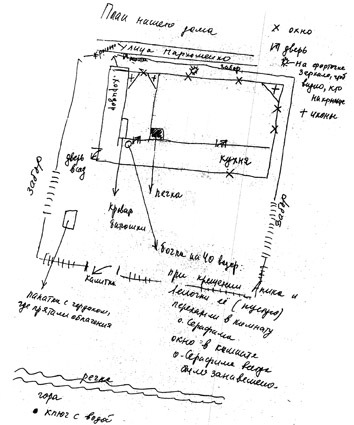 План нашего дома
улица Пархоменко
× окно
дверь
на форточке
зеркало, чтоб
видно, кто
на крыльце
+ иконы
забор
коридор
кухня
дверь
вход
забор
забор
печка
кровать
бочка на 40 ведер:
при крещении
её (пустую)
перекрыли в комнату
о. Серафима
окно в комнате
о. Серафима всегда
было занавешено
калитка
палатка с
где прятали облачения
речка
гора
• ключ с водой